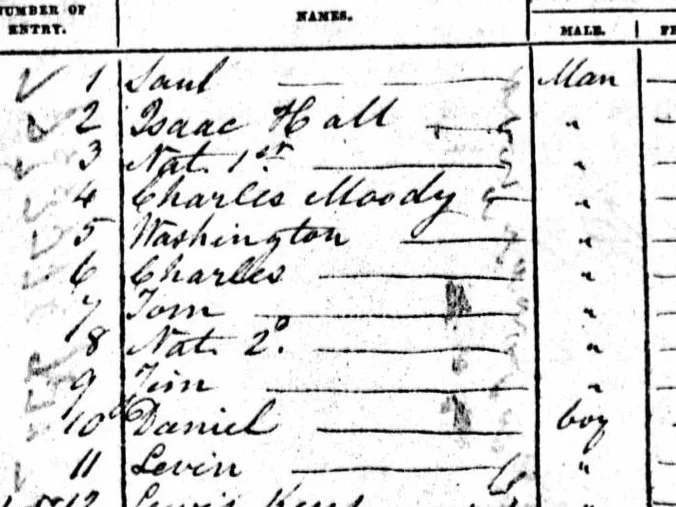 NUMBER OF ENTRY. NAMES. MALE.
1 Saul Man
2 Isaac Hall "
3 Nat. 1st "
4 Charles Moody "
5 Washington "
6 Charles "
7 Tom "
8 Nat. 2d. "
9 Jim "
10 Daniel boy
11 Levin "
12 Lewis "